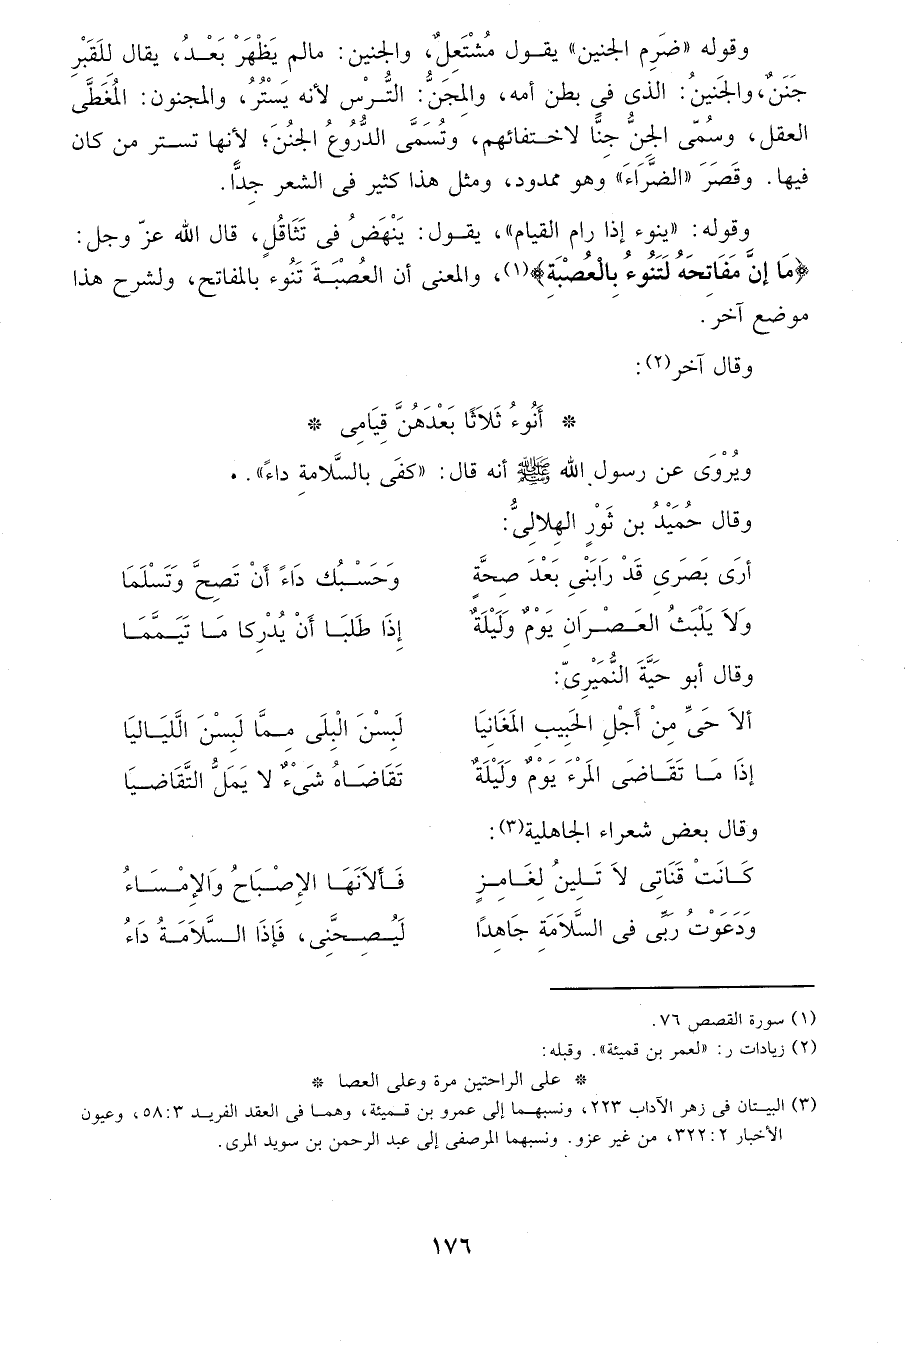 وقوله «ضَرِم الجنين» يقول مُشْتَعِلٌ، والجنين: مالم يَظْهَرْ بَعْدُ، يقال للقَبْرِ
جَنَنٌ، والجَنينُ: الذى فى بطن أمه، والمِجَنُّ: التُّرْس لأنه يَسْتُرُ، والمجنون: المُغَطَّى
العقل، وسُمّى الجِنُّ جِنًّا لاختفائهم، وتُسَمَّى الدُّرُوعُ الجُنُنَ؛ لأنها تستر من كان
فيها. وقَصَرَ «الضَّرَّاءَ» وهو ممدود، ومثل هذا كثير فى الشعر جدًّا.
وقوله: «ينوء إذا رام القيام»، يقول: يَنْهَضُ فى تَثَاقُلٍ، قال الله عزّ وجل:
﴿مَا إِنَّ مَفَاتحَهُ لَتَنُوءُ بِالْعُصْبَةِ﴾(١)، والمعنى أن العُصْبَةَ تَنُوء بالمفاتح، ولشرح هذا
موضع آخر.
وقال آخر(٢):
* أَنُوءُ ثَلاَثًا بَعْدَهُنَّ قِيَامِى *
ويُرْوَى عن رسول الله ﷺ أنه قال: «كفَى بالسَّلامة داءً».
وقال حُمَيْدُ بن ثَوْرٍ الهِلالِىُّ:
أرَى بَصَرِى قَدْ رَابَنِى بَعْدَ صحَّةٍ وَحَسْبُك دَاءً أَنْ تَصِحَّ وَتَسْلَمَا
وَلاَ يَلْبَثُ العَصْرانِ يَوْمٌ وَلَيْلَةٌ إِذَا طَلَبَا أَنْ يُدْرِكا مَا تَيَمَّمَا
وقال أبو حَيَّةَ النُّمَيْرِىّ:
ألاَ حَىِّ مِنْ أَجْلِ الحَبِيبِ المَغَانِيَا لَبِسْنَ الْبِلَى مِمَّا لَبِسْنَ اللَّيَالِيَا
إذَا مَا تَقَاضَى المَرْءَ يَوْمٌ وَلَيْلَةٌ تَقَاضَاهُ شَىْءٌ لا يَمَلُّ التَّقَاضِيَا
وقال بعض شعراء الجاهلية(٣):
كَانَتْ قَنَاتِى لاَ تَلِينُ لِغَامِزٍ فَأَلاَنَهَا الإِصْبَاحُ وَالإِمْسَاءُ
وَدَعَوْتُ رَبِّى فى السَّلاَمَةِ جَاهِدًا لِيُصِحَّنِى، فَإِذَا السَّلاَمَةُ دَاءُ
(١) سورة القصص ٧٦.
(٢) زيادات ر: «لعمر بن قميئة». وقبله:
* على الراحتين مرة وعلى العصا *
(٣) البيتان فى زهر الآداب ٢٢٣، ونسبهما إلى عمرو بن قميئة، وهما فى العقد الفريد ٣:٥٨، وعيون
الأخبار ٢:٣٢٢، من غير عزو. ونسبهما المرصفى إلى عبد الرحمن بن سويد المرى.
١٧٦